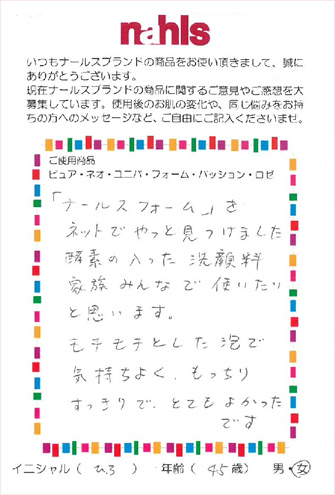 nahls
いつもナールスブランドの商品をお使い頂きまして、誠に
ありがとうございます。
現在ナールスブランドの商品に関するご意見やご感想を大
募集しています。使用後のお肌の変化や、同じ悩みをお持
ちの方へのメッセージなど、ご自由にご記入くださいませ。
ご使用商品
ピュア・ネオ・ユニバ・フォーム・パッション・ロゼ
「ナールスフォーム」を
ネットでやっと見つけました
酵素の入った洗顔料
家族みんなで使いたい
と思います。
モチモチとした泡で
気持ちよく、もっちり
すっきりで、とてもよかった
です
イニシャル( ) 年齢( 45 歳) 男・女